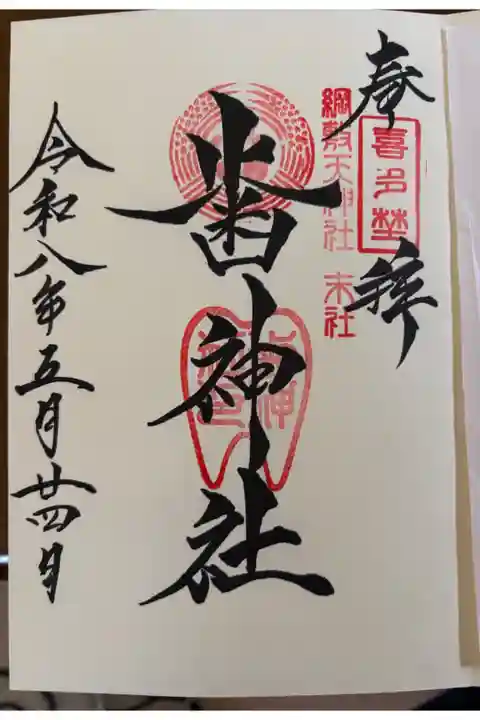 奉拝
喜多埜
綱敷天神社 末社
歯神社
令和八年五月廿四日